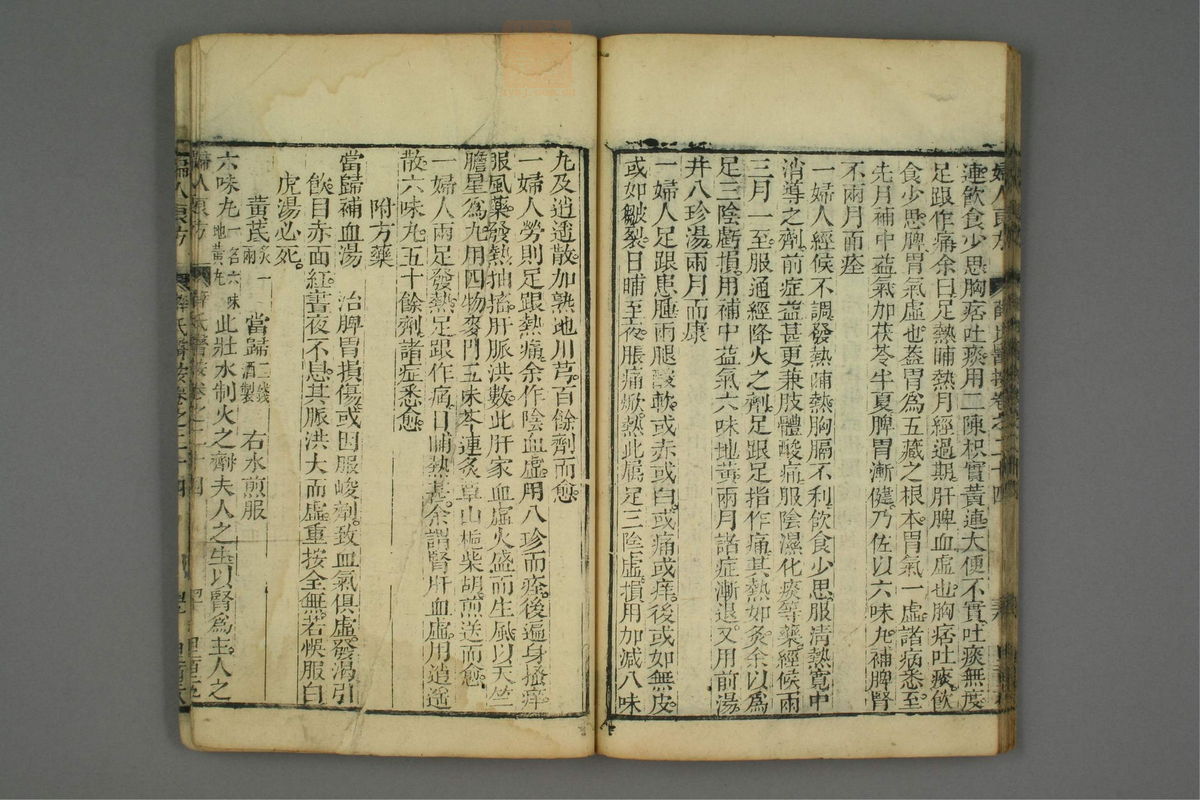 連飲食少思胸痞吐痰用二陳枳實黃連大便不實吐痰無度
足跟作痛余曰足熱晡熱月經過期肝脾血虛也胸痞吐痰飲
食少思脾胃氣虛也蓋胃爲五藏之根本胃氣一虛諸病悉至
先月補中益氣加茯苓半夏脾胃漸健乃佐以六味丸補脾腎
不兩月而痊
一婦人經候不調發熱晡熱胸膈不利飲食少思服清熱寬中
消導之劑前症益甚更兼肢體酸痛服除濕化痰等藥經候兩
三月一至服通經降火之劑足跟足指作痛其熱如炙余以爲
足三陰虧損用補中益氣六味地黃兩月諸症漸退又用前湯
井八珍湯兩月而康
一婦人足跟患腫兩腿酸軟或赤或白或痛或痒後或如無皮
或如皺裂日晡至夜脹痛焮熱此屬足三陰虛損用加減八味
九及逍遙散加熟地川芎百餘劑而愈
一婦人勞則足跟熱痛余作陰血虛用八珍而痊後遍身搔痒
服風藥發熱抽搐肝脈洪數此肝家血虛火盛而生風以天竺
膽星爲丸用四物麥門五味芩連炙草山梔柴胡煎送而愈
一婦人兩足發熱足跟作痛日晡熱甚余謂腎肝血虛用逍遙
散六味丸五十餘劑諸症悉愈
附方藥
當歸補血湯 治脾胃損傷或因服峻劑致血氣俱虛發渴引
飲目赤而紅晝夜不息其脈洪大而虛重按全無若悞服白
虎湯必死
黃芪炙一兩 當歸二錢酒製 右水煎服
六味丸一名六味地黃丸 此壯水制火之劑夫人之生以腎爲主人之